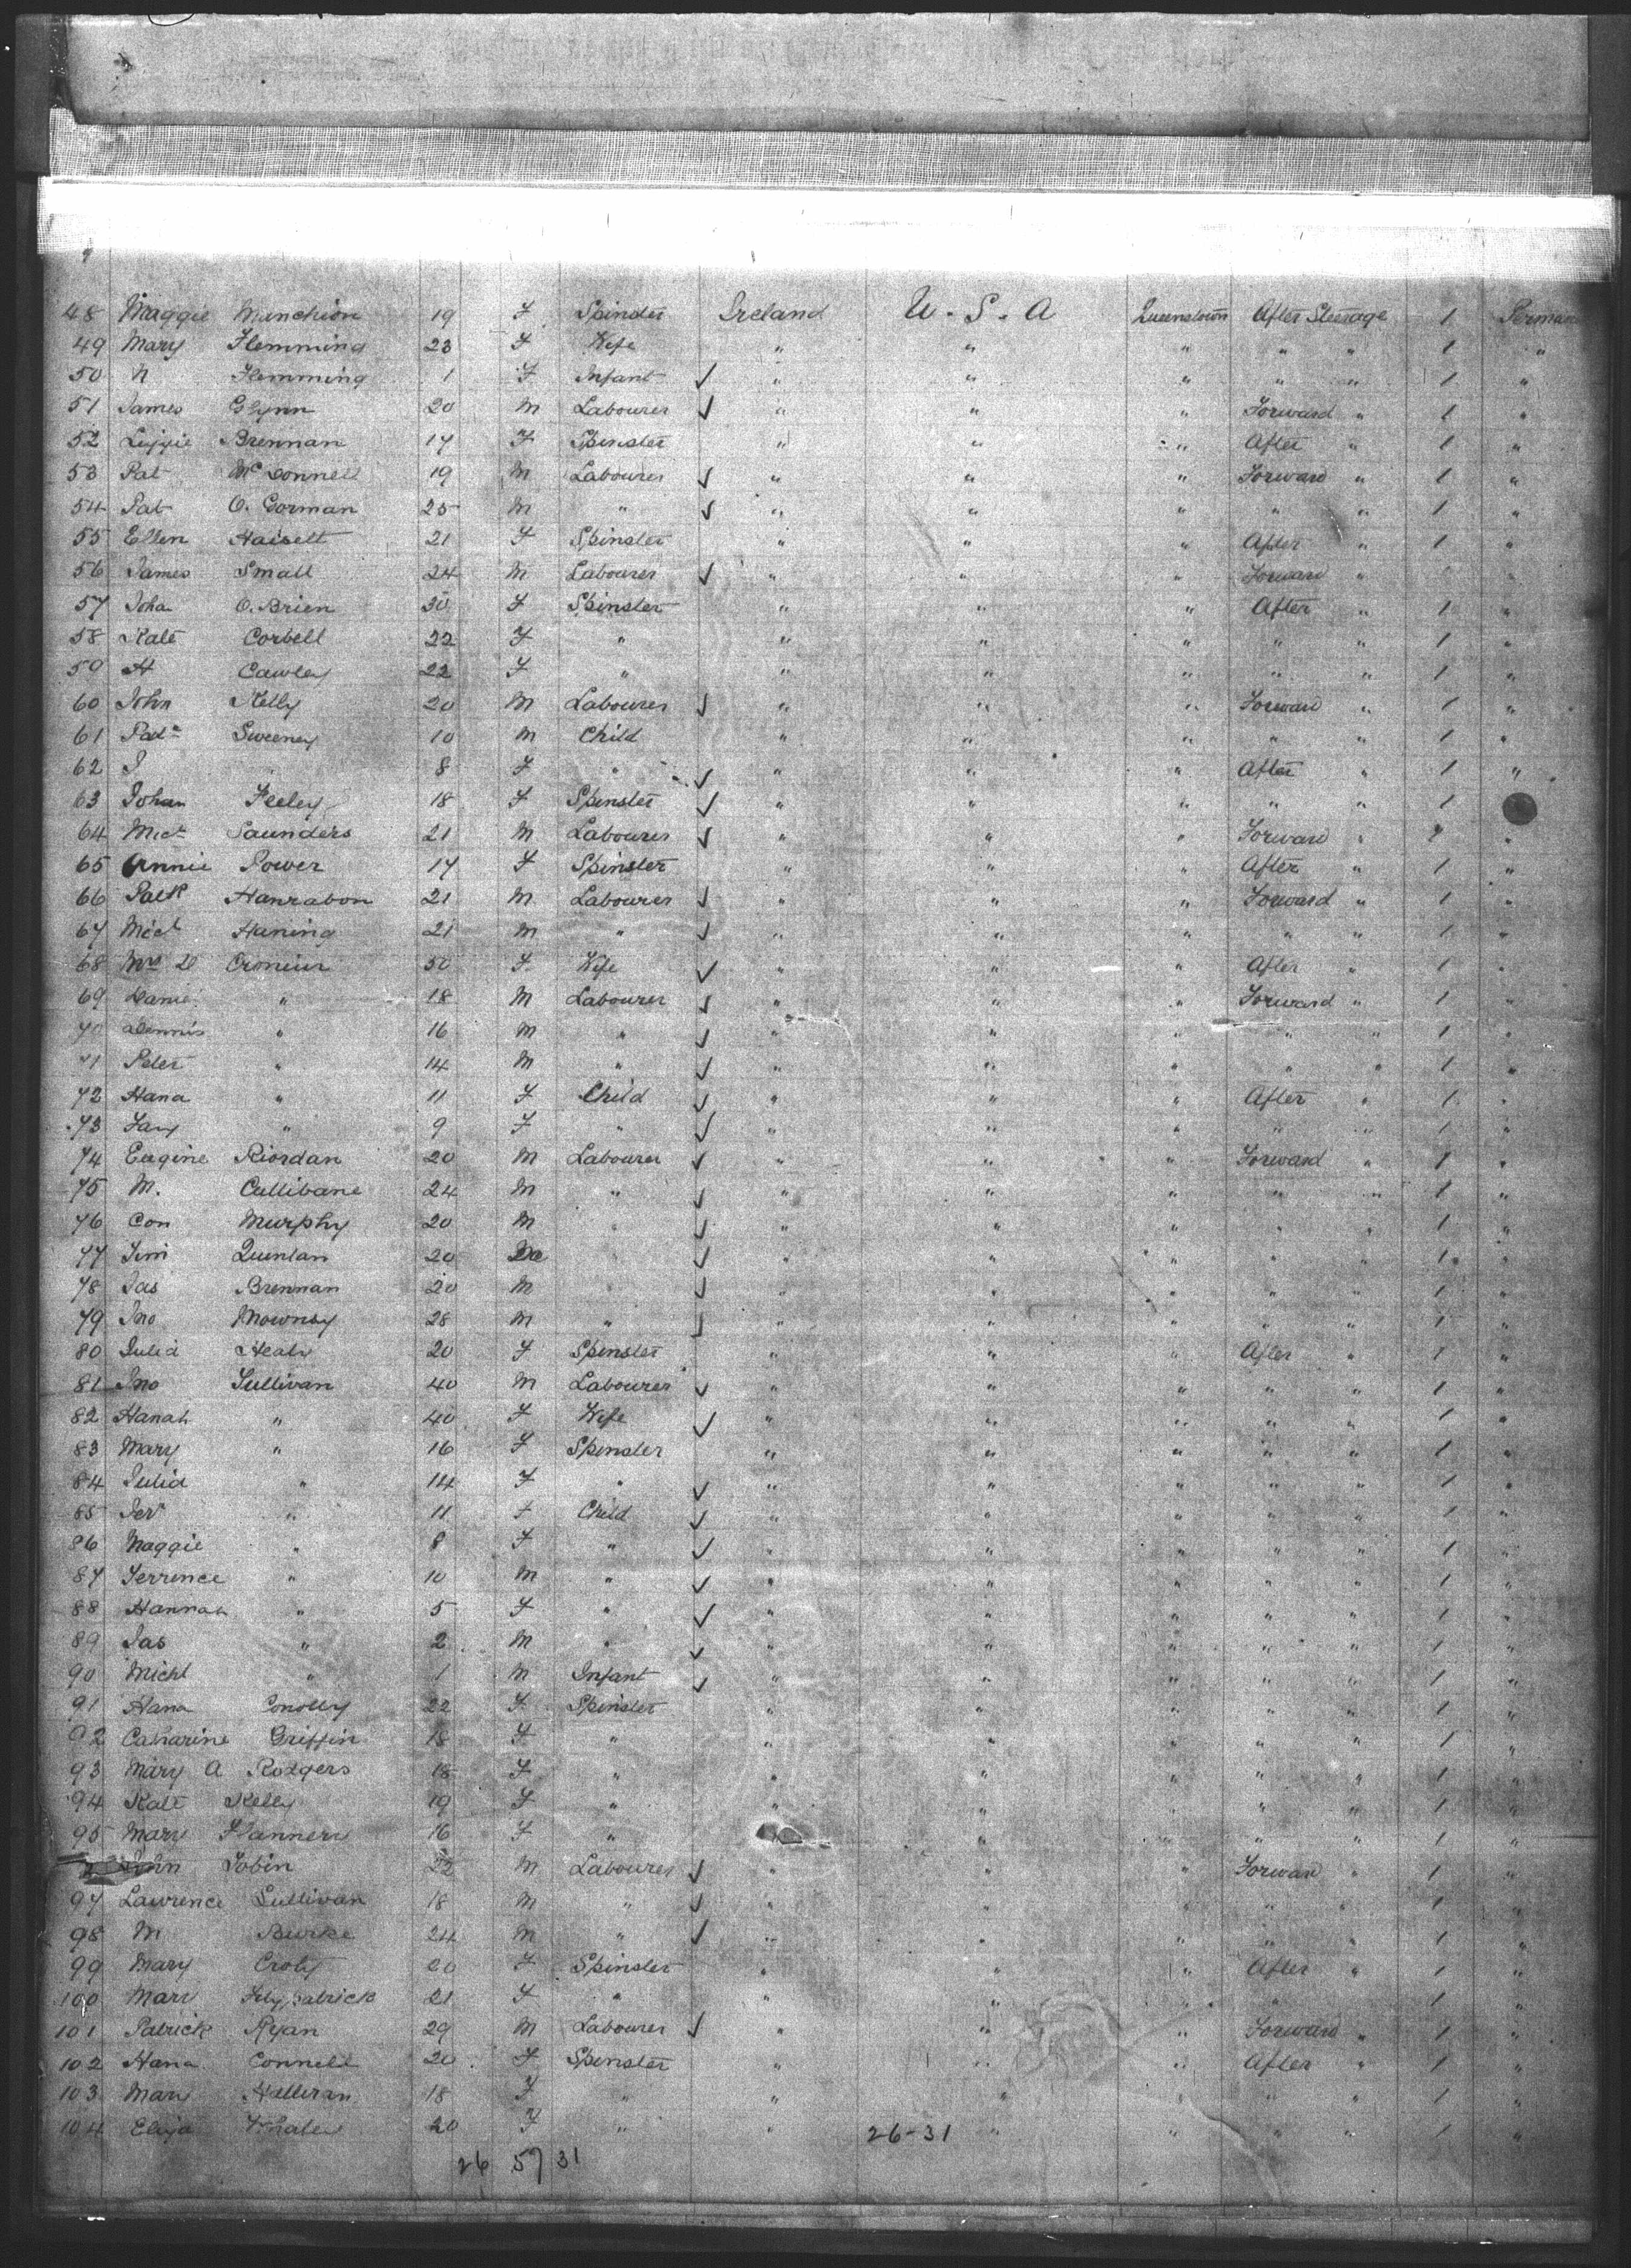 48 Maggie Manchion 19 F Spinster Ireland U.S.A Queenstown After Steerage 1 Perman
49 Mary Flemming 23 F Wife " " " " " 1 "
50 N Flemming 1 F Infant ✓ " " " " " 1 "
51 James Glynn 20 M Labourer ✓ " " " Forward " 1 "
52 Lizzie Brennan 17 F Spinster " " " After " 1 "
53 Pat McDonnell 19 M Labourer ✓ " " " Forward " 1 "
54 Pat O. Gorman 25 M " ✓ " " " " " 1 "
55 Ellen Haisett 21 F Spinster " " " After " 1 "
56 James Small 24 M Labourer ✓ " " " Forward "
57 Joha O. Brien 30 F Spinster " " " After " 1 "
58 Kate Corbell 22 F " " " " " " 1 "
59 H Cawley 22 F " " " " " " 1 "
60 John Kelly 20 M Labourer ✓ " " " Forward " 1 "
61 Patk Sweeney 10 M Child " " " " " 1 "
62 J 8 F " ✓ " " " After " 1 "
63 Johan Feeley 18 F Spinster ✓ " " " " " 1
64 Mict Saunders 21 M Labourer ✓ " " " Forward " "
65 Annie Power 17 F Spinster " " " After " 1 "
66 Patk Hanrabon 21 M Labourer ✓ " " " Forward " 1 "
67 Micl Haning 21 M " ✓ " " " " " 1 "
68 Mrs D Croneur 50 F Wife ✓ " " " After " 1 "
69 Danie " 18 M Labourer ✓ " " " Forward " 1 "
70 Dennis " 16 M " ✓ " " " " " 1 "
71 Peter " 14 M " ✓ " " " " " 1 "
72 Hana " 11 F Child ✓ " " " After " 1 "
73 Fany " 9 F " ✓ " " " " " 1 "
74 Eugine Riordan 20 M Labourer ✓ " " " Forward " 1 "
75 M. Cullibane 24 M " ✓ " " " " " 1 "
76 Con Murphy 20 M " ✓ " " " " " 1 "
77 Jim Quinlan 20 Do " ✓ " " " " " 1 "
78 Jas Brennan 20 M " ✓ " " " " " 1 "
79 Jno Mownsy 28 M " ✓ " " " " " 1 "
80 Julia Healy 20 F Spinster " " " After " 1 "
81 Jno Sullivan 40 M Labourer ✓ " " " " " 1 "
82 Hanah " 40 F Wife ✓ " " " " " 1 "
83 Mary " 16 F Spinster " " " " " 1 "
84 Julia " 14 F " ✓ " " " " " 1 "
85 Jer " 11 F Child ✓ " " " " " 1 "
86 Maggie " 8 F " ✓ " " " " " 1 "
87 Terrence " 10 M " ✓ " " " " " 1 "
88 Hannah " 5 F " ✓ " " " " " 1 "
89 Jas " 2 M " ✓ " " " " " 1 "
90 Michl " 1 M Infant ✓ " " " " " 1 "
91 Hana Conolly 22 F Spinster " " " " " 1 "
92 Catharine Griffin 18 F " " " " " " 1 "
93 Mary A Rodgers 18 F " " " " " " 1 "
94 Kate Kelly 19 F " " " " " " 1 "
95 Mary Flannery 16 F " " " " " 1 "
John Tobin 22 M Labourer ✓ " " Forward " 1 "
97 Lawrence Sullivan 18 M " ✓ " " " " " 1 "
98 M Burke 24 M " ✓ " " " " " 1 "
99 Mary Croty 20 F Spinster " " " After " 1 "
100 Mary Fitzpatrick 21 F " " " " " 1 "
101 Patrick Ryan 29 M Labourer ✓ " " " Forward " 1 "
102 Hana Connell 20 F Spinster " " " After " 1 "
103 Mary Halleran 18 F " " " " " " 1 "
104 Eliza Whaley 20 F " " " " " " 1 "
26-31
26 57 31